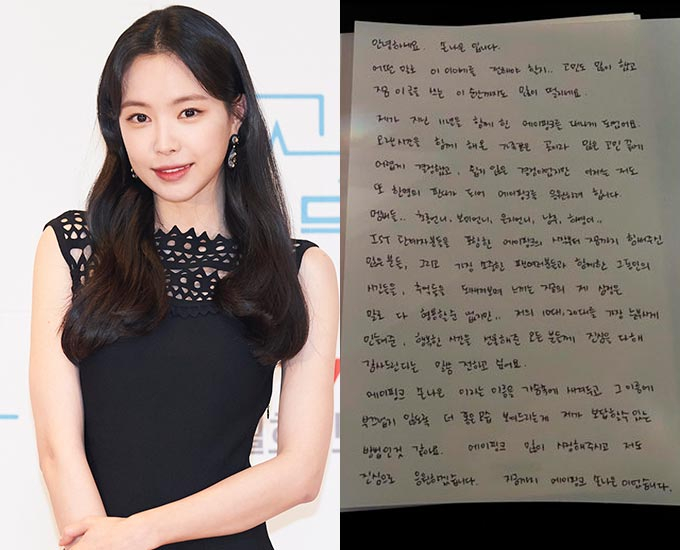 안녕하세요. 손나은 입니다.
어떤 말로 이 이야기를 전해야 할지.. 고민도 많이 했고
지금 이 글을 쓰는 이 순간까지도 많이 떨리네요.
제가 지난 11년을 함께 한 에이핑크를 떠나게 되었어요.
오랜시간을 함께 해온 가족같은 곳이라 많은 고민 끝에
어렵게 결정했고, 쉽지 않은 결정이었지만 이제는 저도
또 한명의 판다가 되어 에이핑크를 응원하려 합니다
멤버들.. 초롱언니, 보미언니, 은지언니, 남주, 하영이..
IST 관계자분들을 포함한 에이핑크의 시작부터 지금까지 함께해주신
많은 분들, 그리고 가장 소중한 팬여러분들과 함께한 그동안의
시간들을, 추억들을 되새겨보며 느끼는 지금의 제 심정은
말로 다 형용할순 없지만.. 저의 10대, 20대를 가장 눈부시게
만들어준, 행복한 시간을 선물해준 모든 분들께 진심을 다해
감사드린다는 말씀 전하고 싶어요.
에이핑크 손나은 이라는 이름을 가슴속에 새겨두고, 그 이름에
부끄럽지 않도록 더 좋은 모습 보여드리는게 제가 보답할수 있는
방법인것 같아요. 에이핑크 많이 사랑해주시고 저도
진심으로 응원하겠습니다. 지금까지 에이핑크 손나은 이었습니다.